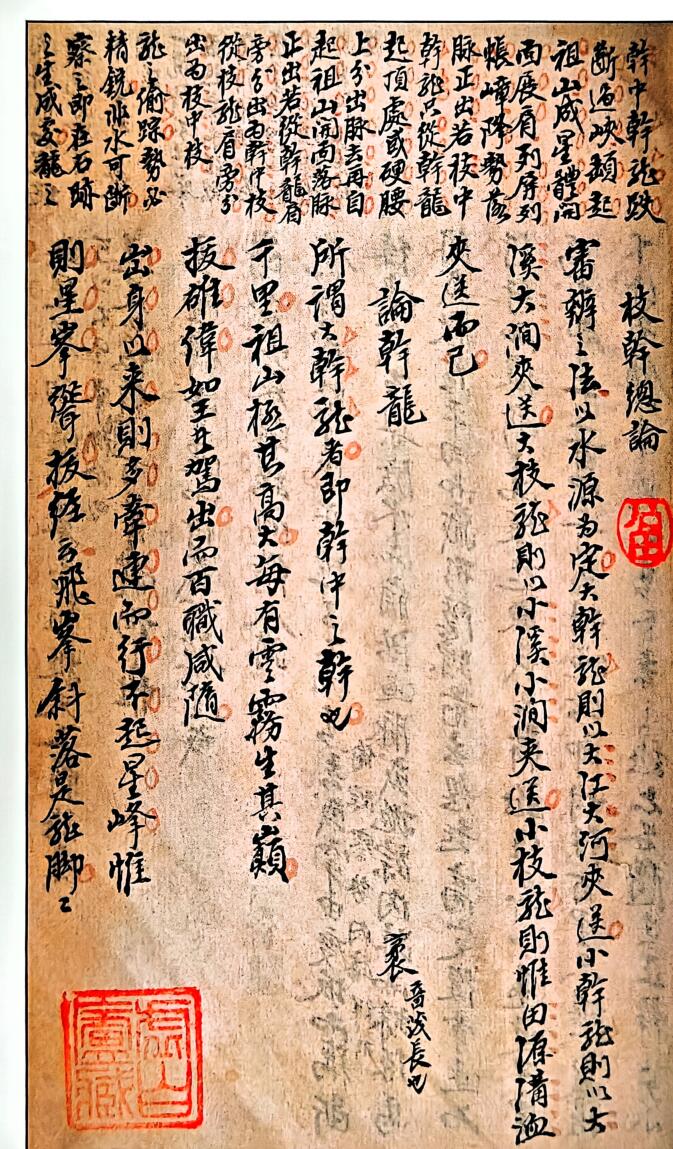 幹中幹龍跌
斷過峽頓起
祖山成星體開
面展肩列屏列
帳嶂降勢落
脉正出若枝中
幹龍只從幹龍
起頂處或硬腰
上分出脉去再自
起祖山開面落脉
正出若從幹龍肩
旁分出為幹中枝
從枝龍肩旁分
出為枝中枝
龍之偷踪勢必
精銳非水可斷
察之即在石跡
之生成處龍之
枝幹總論
審辦之法以水源為定大幹龍則以大江大河夾送小幹龍則以大
溪大澗夾送大枝龍則以小溪小澗夾送小枝龍則惟田源溝洫
夾送而已
論幹龍
所謂大幹龍者即幹中之幹也
千里祖山極其高大每有雲霧生其巔
拔雄偉如王者駕出而百職咸隨
出身以來則多牽連而行不起星峰惟
則星峯聳拔經云飛峯斜落是龍脚之
袤 音茂長也